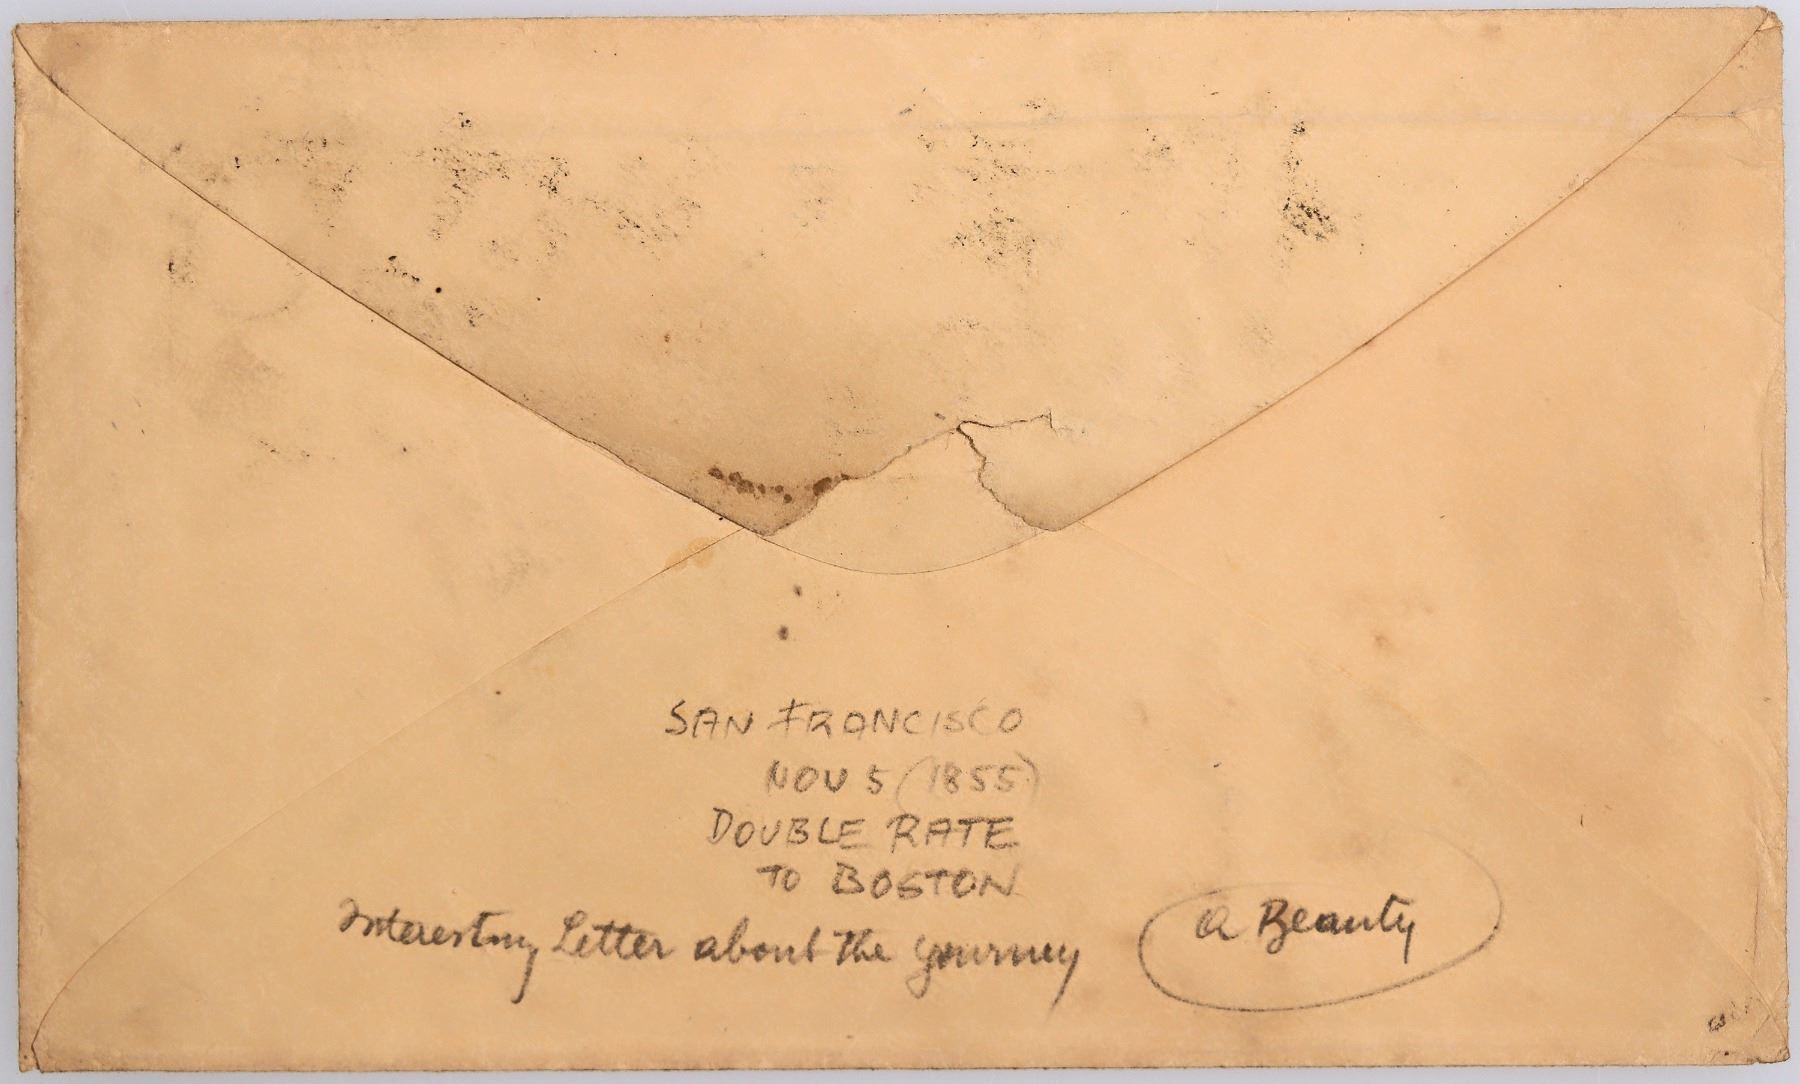 SAN FRANCISCO
NOV 5 (1855)
DOUBLE RATE
TO BOSTON
Interesting Letter about the yourney
A Beauty